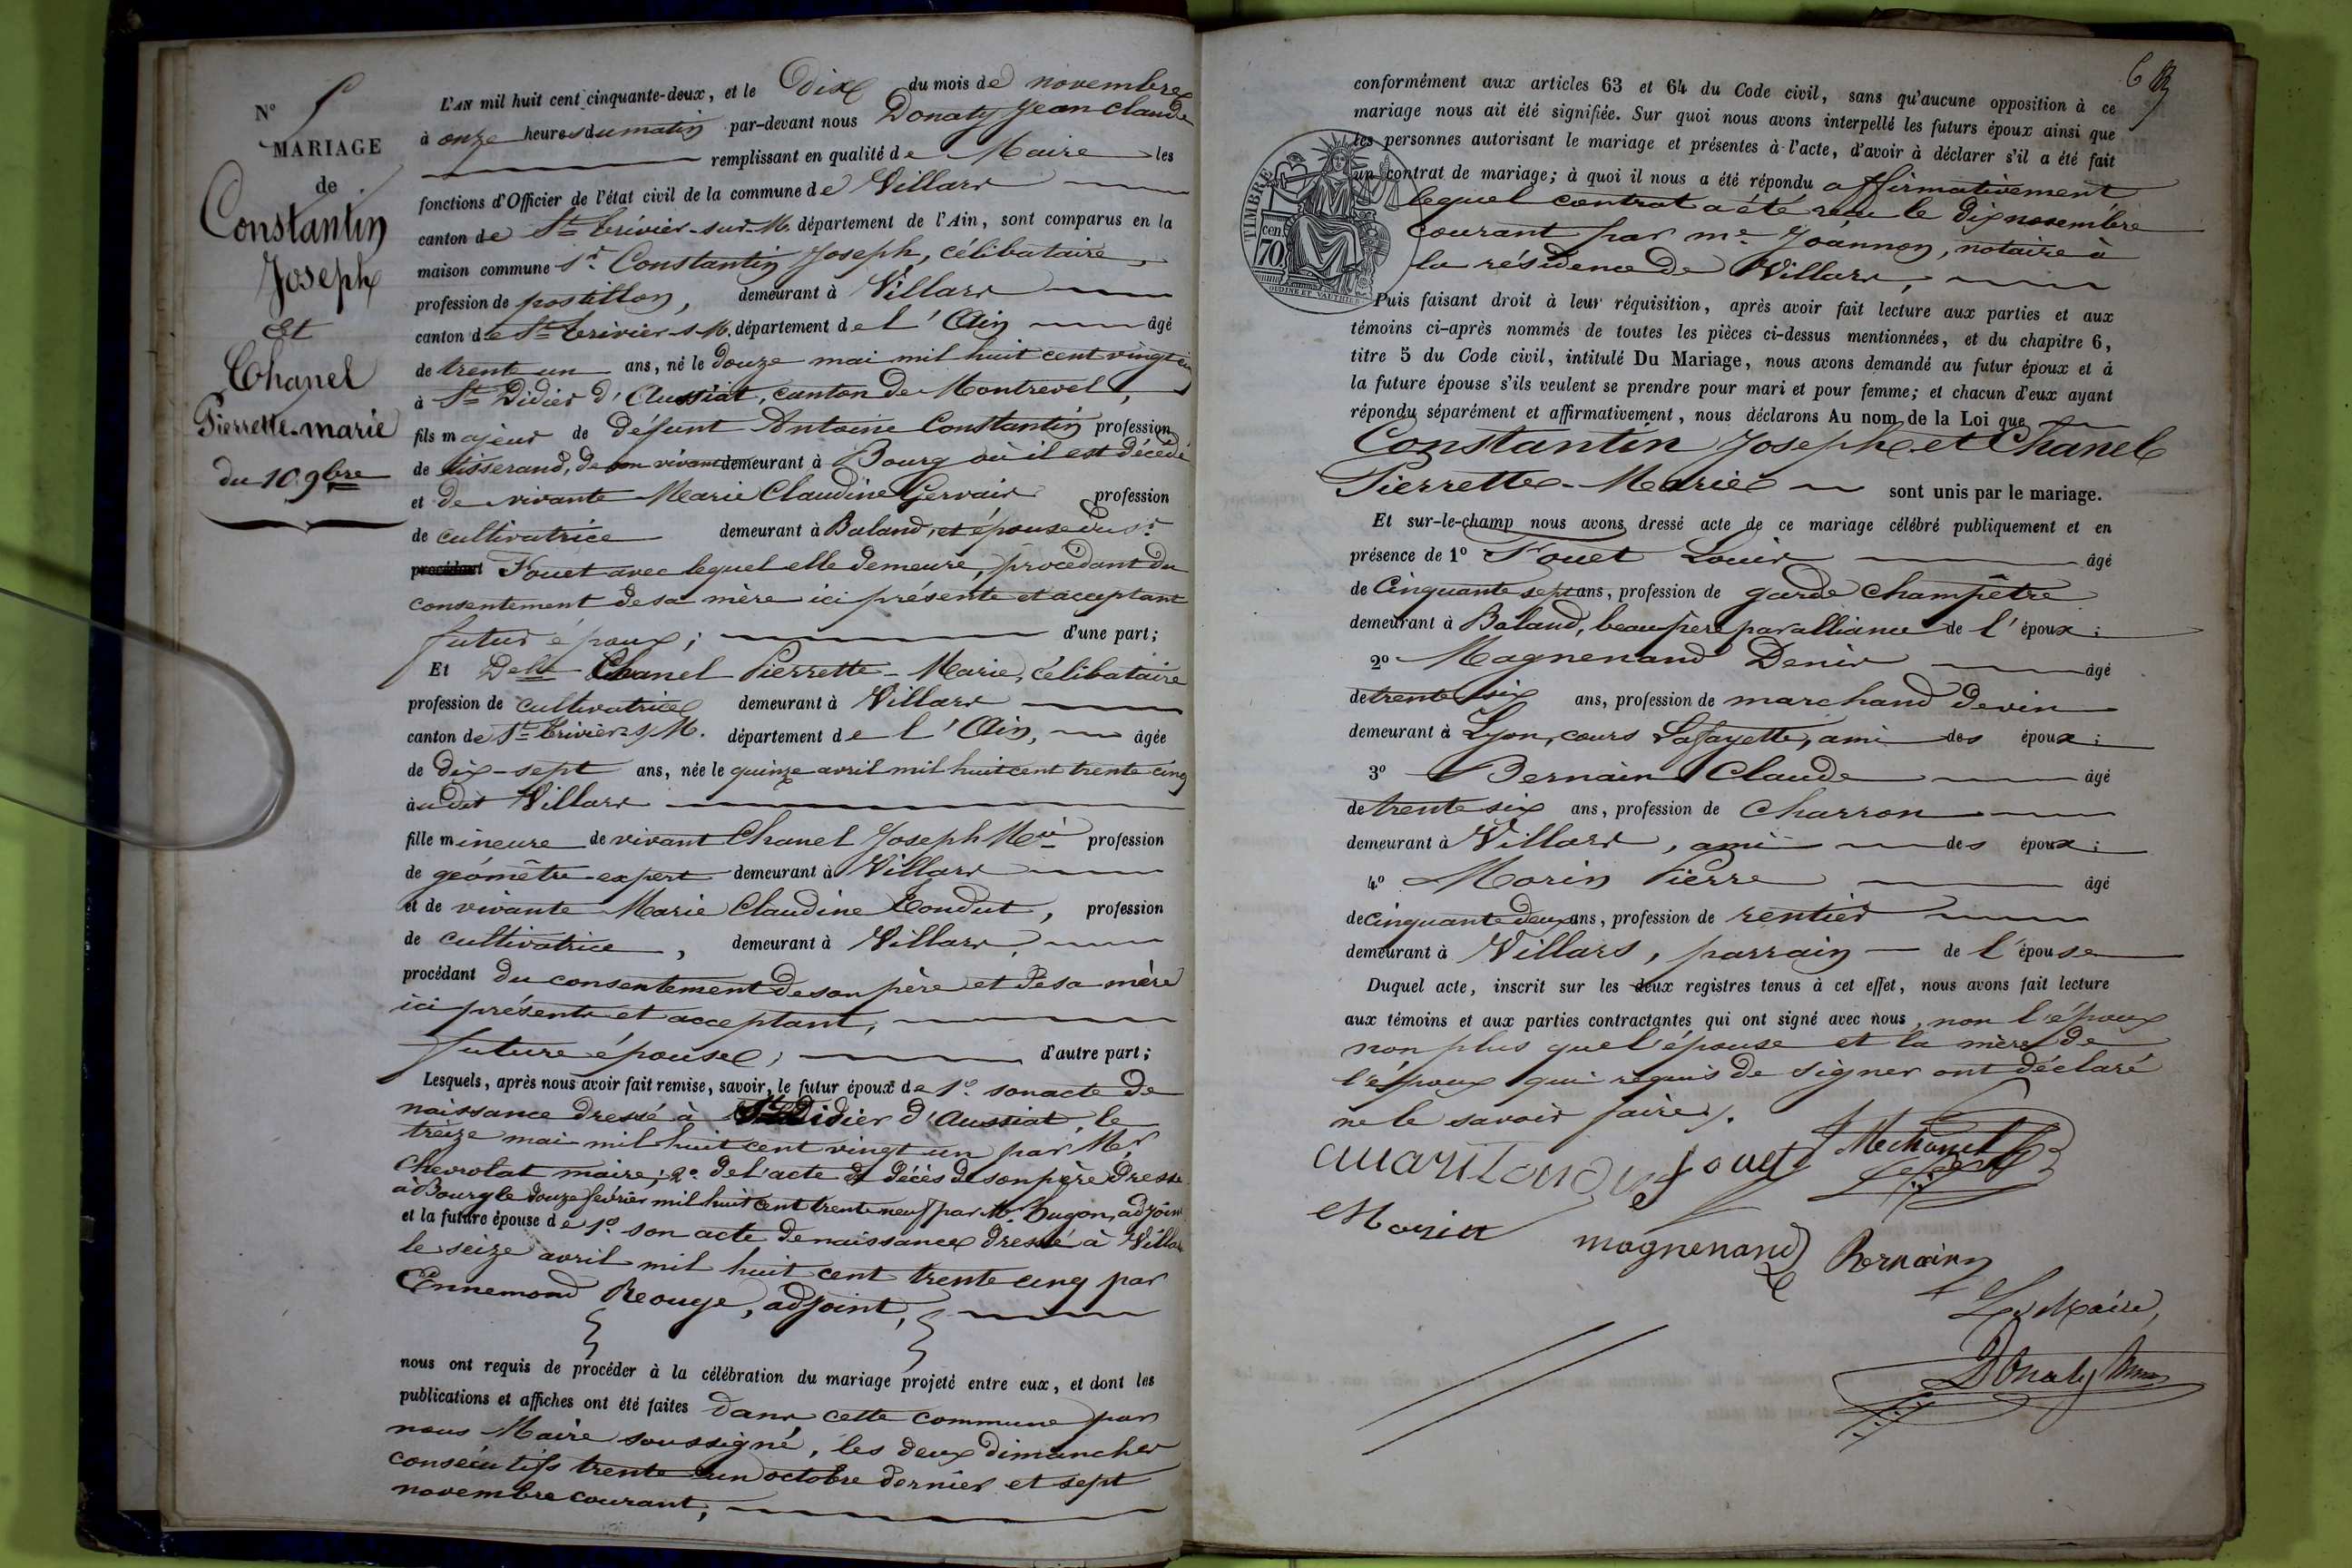 N° 5
MARIAGE
de
Constantin
Joseph
Et
Chanel
Pierrette-marie
du 10 9bre
L'AN mil huit cent cinquante-deux, et le Dix du mois de novembre
à onze heures du matin par-devant nous Donaty Jean Claude
remplissant en qualité de Maire les
fonctions d'Officier de l'état civil de la commune de Villars
canton de St Trivier-sur-M. département de l'Ain, sont comparus en la
maison commune Sr Constantin Joseph, célibataire,
profession de postillon, demeurant à Villars
canton de St Trivier-s-M. département de l'Ain âgé
de trente un ans, né le douze mai mil huit cent vingt un
à St Didier d'Aussiat, canton de Montrevel,
fils majeur de défunt Antoine Constantin profession
de tisserand, de son vivant demeurant à Bourg où il est décédé
et de vivante Marie Claudine Gervais profession
de cultivatrice demeurant à Baland, et épouse du Sr
procédant Fouet avec lequel elle demeure, procédant du
consentement de sa mère ici présente et acceptant
futur époux; d'une part;
Et Delle Chanel Pierrette-Marie, célibataire
profession de cultivatrice demeurant à Villars
canton de St Trivier-s/M. département de l'Ain, âgée
de dix-sept ans, née le quinze avril mil huit cent trente cinq
au dit Villars
fille mineure de vivant Chanel Joseph Mie profession
de géomètre-expert demeurant à Villars
et de vivante Marie Claudine Condut, profession
de cultivatrice, demeurant à Villars,
procédant du consentement de son père et de sa mère
ici présents et acceptant,
future épouse, d'autre part;
Lesquels, après nous avoir fait remise, savoir, le futur époux de 1° son acte de
naissance dressé à St Didier d'Aussiat, le
treize mai mil huit cent vingt un par Mr
Chevrolat maire; 2° de l'acte de décès de son père dressé
à Bourg le douze février mil huit cent trente neuf par Mr Hugon, adjoint
et la future épouse de 1° son acte de naissance dressé à Villars
le seize avril mil huit cent trente cinq par
Ennemond Rouge, adjoint,
nous ont requis de procéder à la célébration du mariage projeté entre eux, et dont les
publications et affiches ont été faites dans cette commune par
nous Maire soussigné, les deux dimanches
consécutifs trente un octobre dernier et sept
novembre courant;
conformément aux articles 63 et 64 du Code civil, sans qu'aucune opposition à ce
mariage nous ait été signifiée. Sur quoi nous avons interpellé les futurs époux ainsi que
les personnes autorisant le mariage et présentes à l'acte, d'avoir à déclarer s'il a été fait
un contrat de mariage; à quoi il nous a été répondu affirmativement
lequel contrat a été reçu le dix novembre
courant par me Joannon, notaire à
la résidence de Villars,
TIMBRE
cen.
70
OUDINE ET VAUTHIER
Puis faisant droit à leur réquisition, après avoir fait lecture aux parties et aux
témoins ci-après nommés de toutes les pièces ci-dessus mentionnées, et du chapitre 6,
titre 5 du Code civil, intitulé Du Mariage, nous avons demandé au futur époux et à
la future épouse s'ils veulent se prendre pour mari et pour femme; et chacun d'eux ayant
répondu séparément et affirmativement, nous déclarons Au nom de la Loi que
Constantin Joseph et Chanel
Pierrette-Marie sont unis par le mariage.
Et sur-le-champ nous avons dressé acte de ce mariage célébré publiquement et en
présence de 1° Fouet Louis âgé
de Cinquante sept ans, profession de garde champêtre
demeurant à Baland, beau père par alliance de l'époux;
2° Magnenand Denis âgé
de trente six ans, profession de marchand de vin
demeurant à Lyon, cours Lafayette, ami des époux;
3° Bernain Claude âgé
de trente six ans, profession de Charron
demeurant à Villars, ami des époux;
4° Morin Pierre âgé
de cinquante deux ans, profession de rentier
demeurant à Villars, parrain de l'épouse
Duquel acte, inscrit sur les deux registres tenus à cet effet, nous avons fait lecture
aux témoins et aux parties contractantes qui ont signé avec nous, non l'époux
non plus que l'épouse et la mère de
l'époux qui requis de signer ont déclaré
ne le savoir faire.
fouet Jh Mie chanel
Morin magnenand Bernain
Le Maire,
Donaty